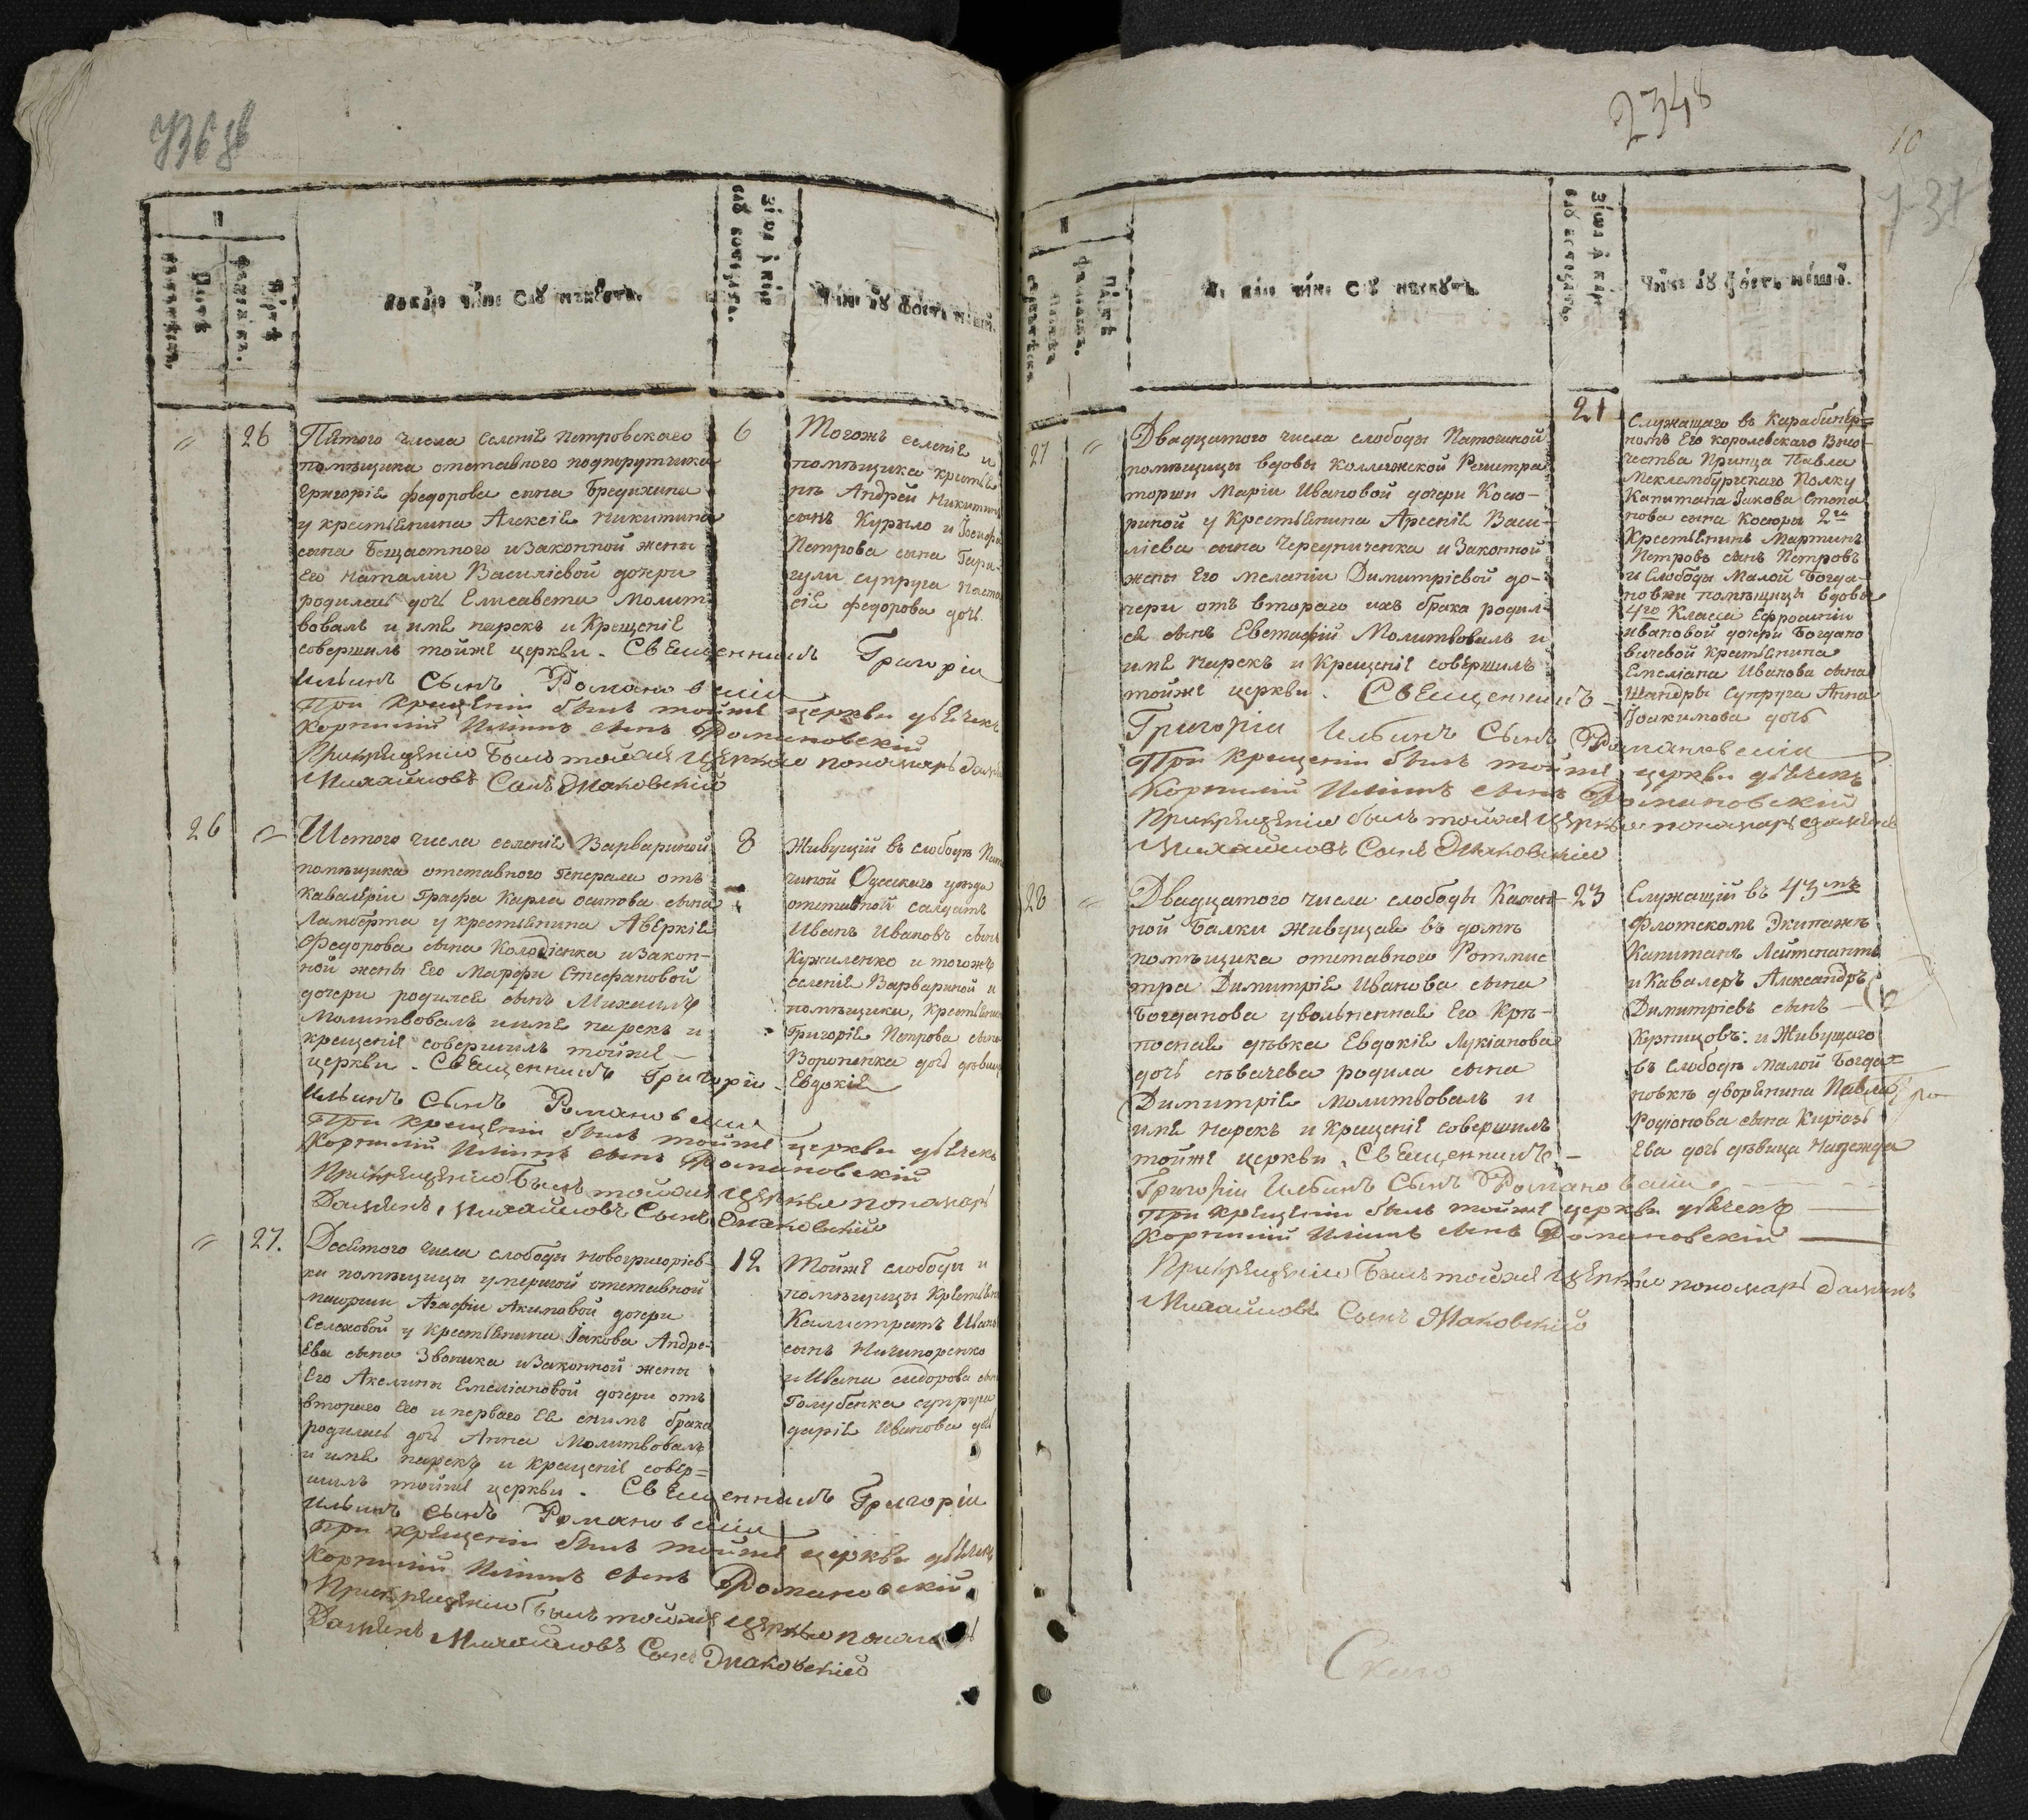 736 об
26
Пятого числа селенія Петровскаго
помѣщика отставного подпорутчика
Григорія Федорова сына Бредихина
у крестьянина Алексія Никитина
сына Бещастного и Законной жены
Его Наталіи Василіевой дочери
родилась дочь Елисавета Молит-
вовалъ и имя нарекъ и Крещеніе
совершилъ тойже церкви. Священникъ Григорій
Ильинъ Сынъ Романовскій
При Крещеніи былъ тойже церкви дьячекъ
Корнилій Ильинъ сынъ Романовскій
При крещеніи Былъ тойже церкви пономарь
Михайловъ Сынъ Знаковскій
6
Тогожъ селенія и
помѣщика крестья
нъ Андрей Никитинъ
сынъ Курыло и Іосифа
Петрова сына Гари-
гули супруга Наста
сія Федорова дочь.
26
Шетого числа селенія Варвариной
помѣщика отставного Генерала отъ
Кавалеріи Графа Карла Осипова сына
Ламберта у крестьянина Аверкія
Федорова сына Колодіенка и Закон-
ной жены Его Марфы Стефановой
дочери родился сынъ Михаилъ
Молитвовалъ и имя нарекъ и
крещеніе совершилъ тойже
церкви. Священникъ Григорій
Ильинъ Сынъ Романовскій
При крещеніи былъ тойже церкви дьячекъ
Корнилій Ильинъ сынъ Романовскій
При крещеніи Былъ тойже церкви пономарь
Даміянъ Михайловъ Сынъ Знаковскій
8
Живущій въ слободѣ Пато
чиной Одесского уѣзда
отставной салдатъ
Иванъ Ивановъ сынъ
Кужиленко и тогожъ
селенія Варвариной и
помѣщика, Крестьянина
Григорія Петрова сына
Вороненка дочь дѣвица
Евдокія
27.
Десятого числа слободы Новогригоріев-
ки помѣщицы умершой отставной
маіорши Агафіи Акимовой дочери
Селеховой у крестьянина Іакова Андре-
ева сына Звоника и Законной жены
Его Акелины Емеліановой дочери отъ
втораго Его и перваго Ея снимъ брака
родилась дочь Анна Молитвовалъ
и имя нарекъ и крещеніе совер=
шилъ тойже церкви. Священникъ Григорій
Ильинъ Сынъ Романовскій
При крещеніи былъ тойже церкви дьячекъ
Корнилій Ильинъ сынъ Романовскій
При крещеніи Былъ тойже церкви пономарь
Даміянъ Михайловъ Сынъ Знаковскій
12
Тойже слободы и
помѣщицы Крестьян
Калистратъ Иванов
сынъ Ничипоренко
и Ивана Сидорова сына
Голубенка супруга
Дарія Иванова дочь
2348
10
737
27
Двадцатого числа слободы Паточиной
помѣщицы вдовы Коллежской Регистра
торши Маріи Ивановой дочери Косю-
риной у Крестьянина Арсенія Васи-
ліева сына Чередниченка и Законной
жены Его Меланіи Димитріевой до-
чери отъ втораго ихъ брака родил-
ся сынъ Евстафій Молитвовалъ и
имя нарекъ и Крещеніе совершилъ
тойже церкви. Священникъ
Григорій Ильинъ Сынъ Романовскій
При Крещеніи былъ тойже церкви дьячекъ
Корнилій Ильинъ сынъ Романовскій
При крещеніи былъ тойже церкви пономарь Даміянъ
Михайловъ Сынъ Знаковскій
21
Служащаго въ Карабинер=
номъ Его Королевскаго Высо-
чества Принца Павла
Мекленбургскаго Полку
Капитана Іакова Степа
нова сына Косюры 2й
Крестьянинъ Мартинъ
Петровъ сынъ Петровъ
и Слободы Малой Богда-
новки помѣщицы вдовы
4го Класса Ефросиніи
Ивановой дочери Богдано
вичевой Крестьянина
Емеліана Иванова сына
Шандры Супруга Анна
Іоакимова дочь
28
Двадцатого числа слободы Камен-
ной Балки живущая въ домѣ
помѣщика отставного Ротмис
тра Димитрія Иванова сына
Богданова увольненная Его Крѣ-
постная дѣвка Евдокія Лукіанова
дочь сина родила сына
Димитрія Молитвовалъ и
имя нарекъ и крещеніе совершилъ
тойже церкви. Священникъ
Григорій Ильинъ Сынъ Романовскій
При крещеніи былъ тойже церкви дьячекъ
Корнилій Ильинъ сынъ Романовскій
При крещеніи Былъ тойже церкви пономарь Даміянъ
Михайловъ Сынъ Знаковскій
23
Служащій въ 43мъ
Флотскомъ Экипажѣ
Капитанъ Лейтенантъ
и Кавалеръ Александръ
Димитріевъ сынъ
Купицовъ: и Живущаго
въ Слободѣ Малой Богда-
новкѣ дворянина Павла
Родіонова сына Киріаз
ева дочь дѣвица Надежда